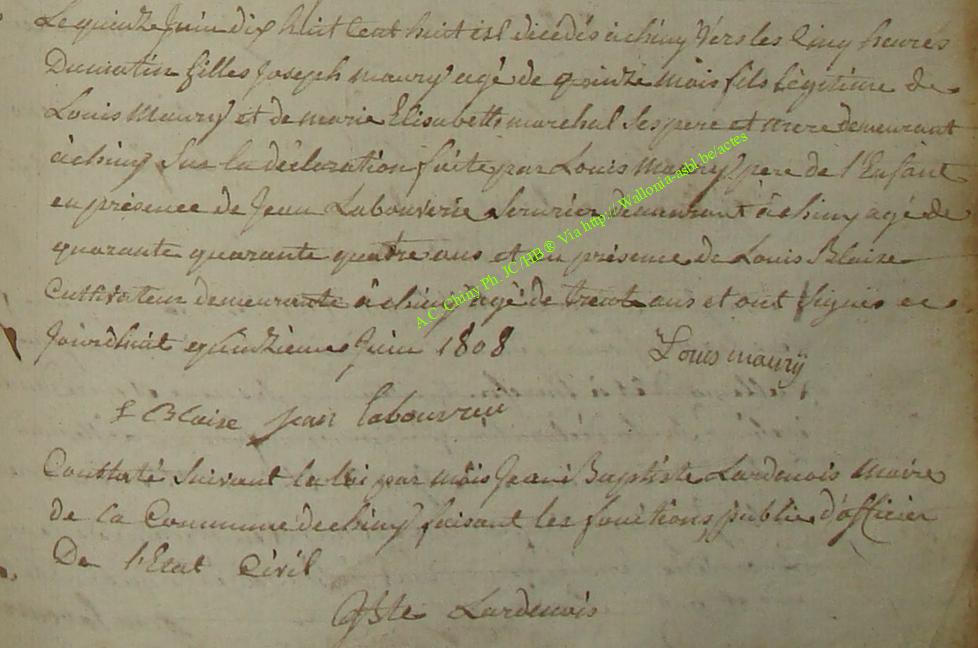 Le quinze Juin dix huit Cent huit est décédés à chiny vers les Cinq heures
Du matin Gilles Joseph maury agé de quinze mois fils Légitime de
Louis Maury et de marie Elisabette marchal Ses pere et mere demeurant
à chiny Sur la déclaration faite par Louis Maury pere de l'Enfant
en présence de Jean Labouverie Serurier demeurant à chiny agé de
quarante quarante quatre ans et en présence de Louis Blaise
Cultivateur demeurante à chiny agé de trente ans et ont Signés ce
Jourdhuit quindzieme Juin 1808 Louis maury
L Blaise Jean labouvrie
Constaté Suivant la loi par mois Jean Baptiste Lardenois maire
de la Commune de chiny faisant les fonctions public d'officier
De l'Etat Civil
Lardenois
A.C. Chiny Ph. JC/HB® Via http://Wallonia-asbl.be/actes